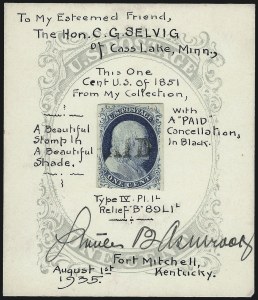 To My Esteemed Friend,
The Hon. C. G. SELVIG
of Cass Lake, Minn.,
This One
Cent U.S. of 1851
From My Collection,
A Beautiful
Stamp In
A Beautiful
Shade.
U.S. POSTAGE
PAID
ONE CENT
With
A "PAID"
Concellation,
In Black.
Type IV - Pl. 1L
Relief "B" 89L1L
Stanley B Ashbrook
Fort Mitchell,
Kentucky.
August 1st
1935.